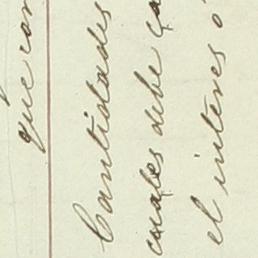 que con
Cantidades
cuales debe
el interes